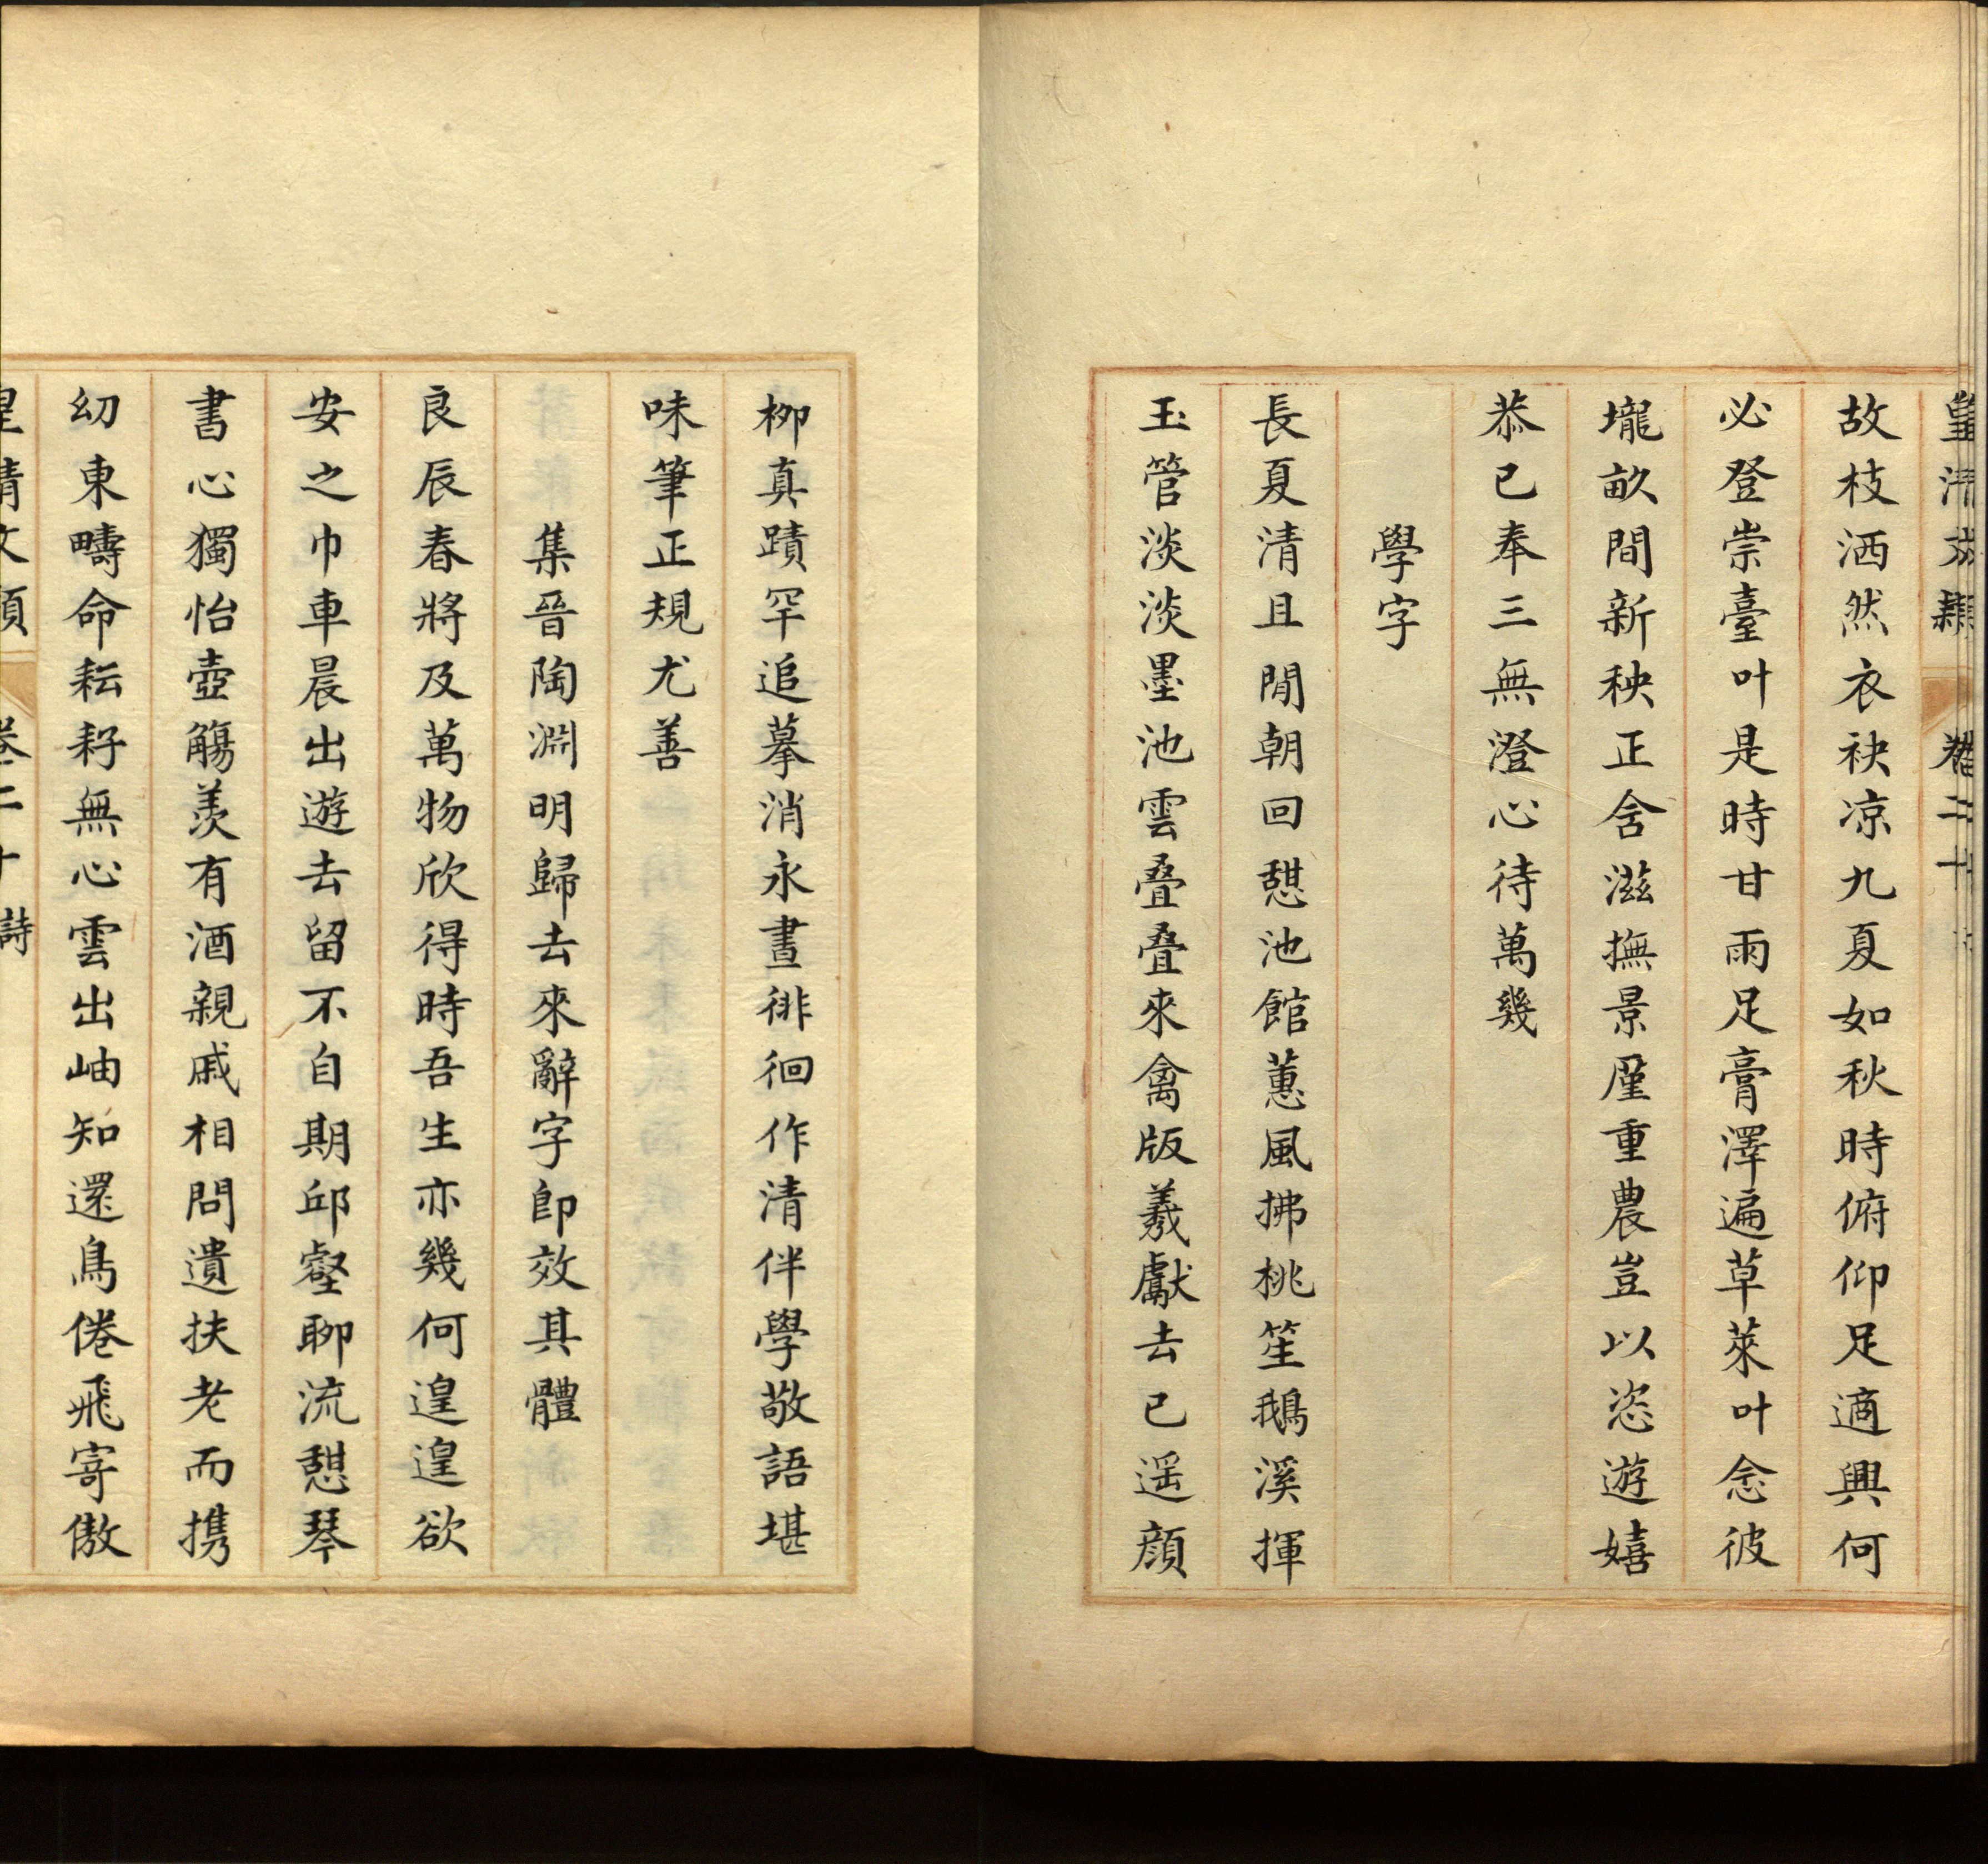 皇清文穎 卷二十
故枝洒然衣袂凉九夏如秋時俯仰足適興何
必登崇臺叶是時甘雨足膏澤遍草萊叶念彼
壠畝間新秧正含滋撫景廑重農豈以恣遊嬉
恭已奉三無澄心待萬幾
學字
長夏清且閒朝回憇池館蕙風拂桃笙鵝溪揮
玉管淡淡墨池雲叠叠來禽版羲獻去已遥顔
栁真蹟罕追摹消永晝徘徊作清伴學敬語堪
味筆正規尤善
集晉陶淵明歸去來辭字即效其體
良辰春將及萬物欣得時吾生亦幾何遑遑欲
安之巾車晨出遊去留不自期邱壑聊流憇琴
書心獨怡壺觴羡有酒親戚相問遺扶老而携
幼東疇命耘耔無心雲出岫知還鳥倦飛寄傲
皇清文穎 卷二十 詩